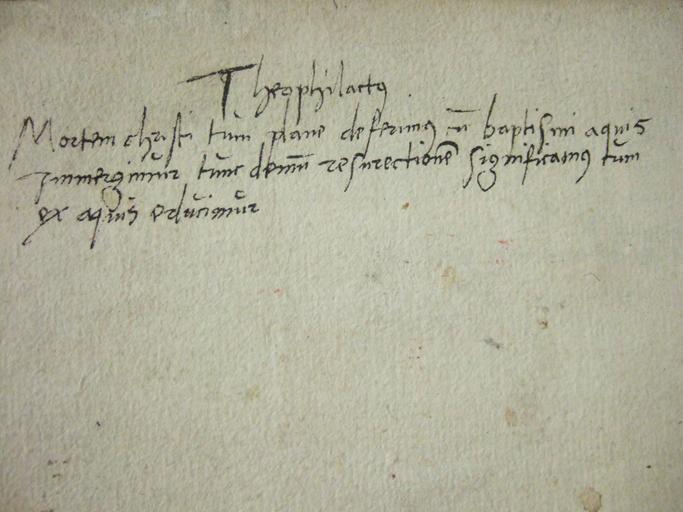 Theophilactꝰ
Mortem christi tum plane deferimꝰ cū baptismi aquis
immergimur tunc demū resurectionē significamꝰ tum
ex aquis educimur